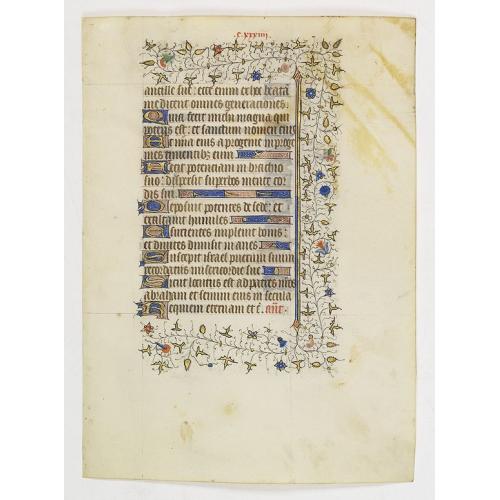 c.xxxiiij
ancille sue: ecce enim ex hoc beatā
me dicent omnes generaciones.
Quia fecit michi magna qui
potens est: et sanctum nomen eius
Et mīa eius a progenie in proge
nies timentibꝫ eum
Fecit potenciam in brachio
suo: dispersit superbos mente cor
dis sui.
Deposuit potentes de sede: et
exaltauit humiles
Esurientes impleuit bonis:
et diuites dimisit inanes
Suscepit israel puerum suum
recordatus misericordie sue
Sicut locutus est ad patres nr̄os
abraham et semini eius in secula
Requiem eternam et c̄. añt.